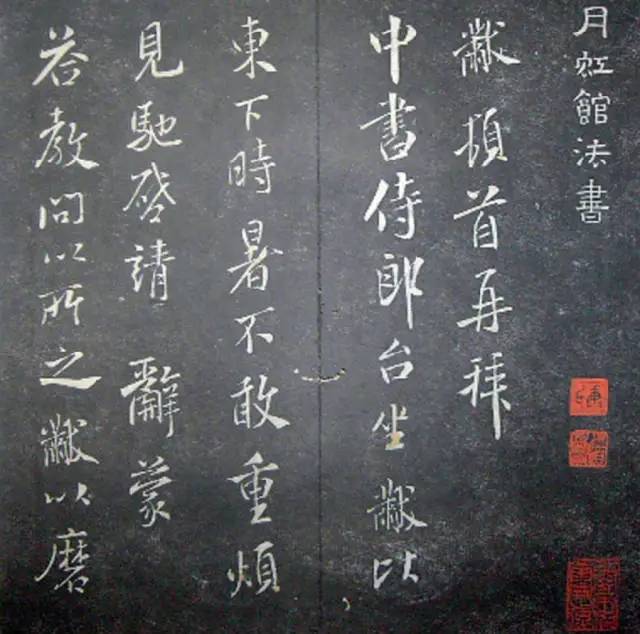 月虹館法書
黻頓首再拜
中書侍郎台坐黻以
東下時暑不敢重煩
見馳啓請辭蒙
答教問以所之黻以磨